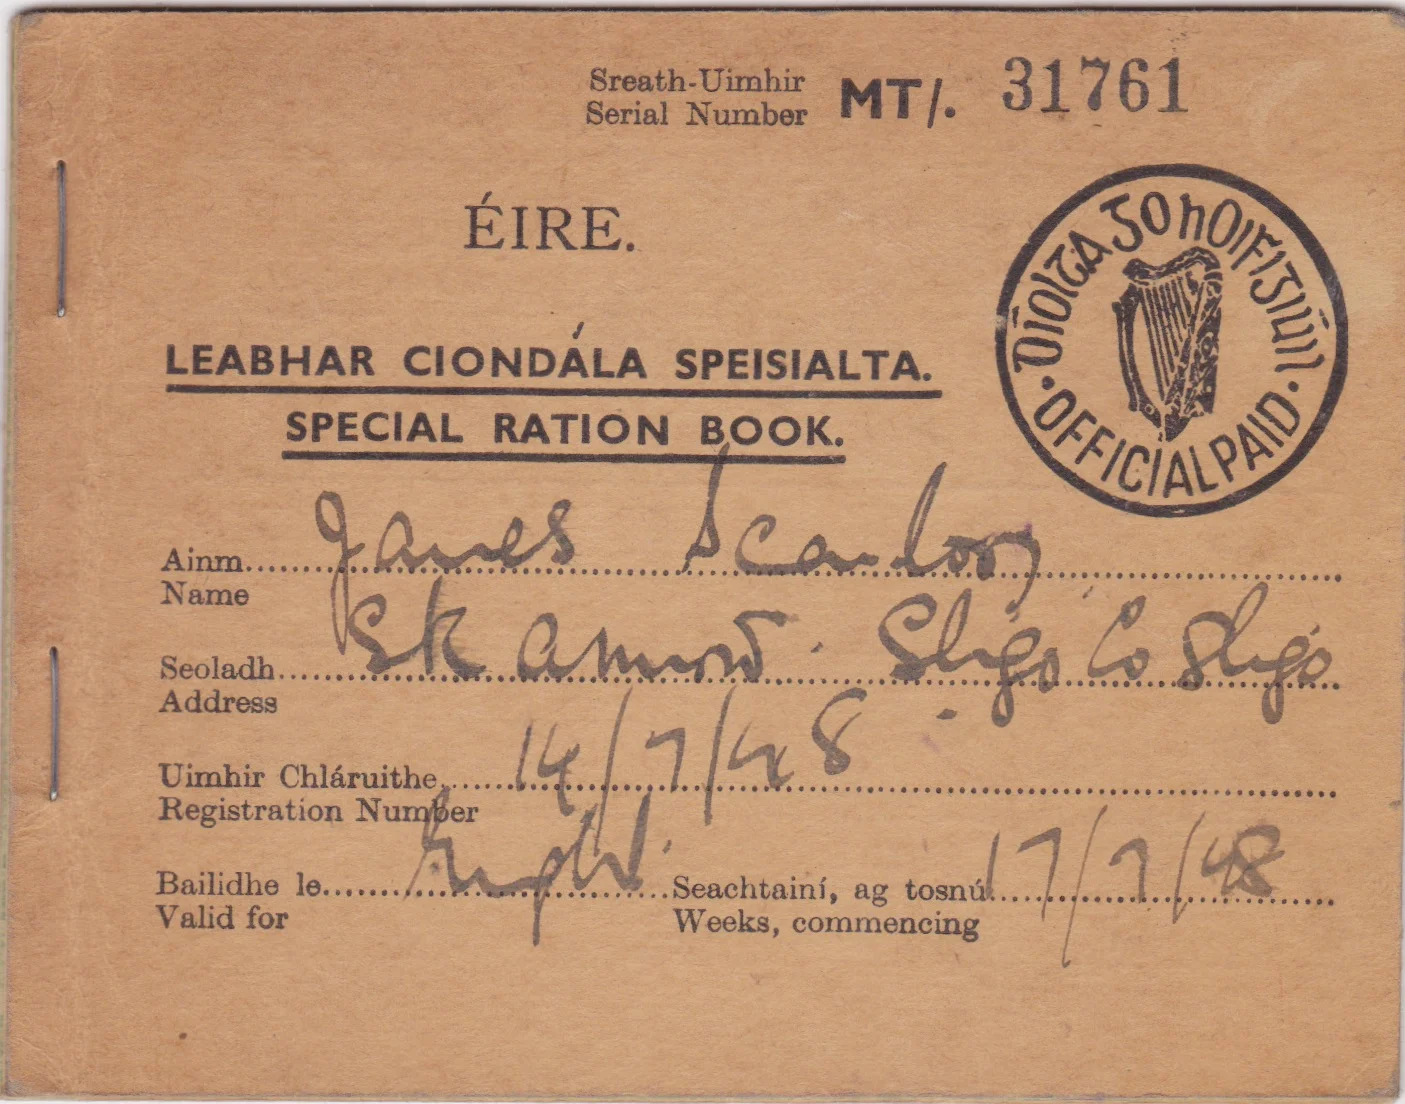 Sreath-Uimhir
Serial Number
MT/. 31761
ÉIRE.
Díolta go hOifigiúil
OFFICIAL PAID
LEABHAR CIONDÁLA SPEISIALTA.
SPECIAL RATION BOOK.
Ainm James Scanlon
Name
Seoladh Sligo Co Sligo
Address
Uimhir Chláruithe 14/7/48
Registration Number
Bailidhe le Eight Seachtainí, ag tosnú 17/7/48
Valid for Weeks, commencing